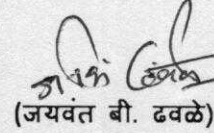 (जयवंत बी. ढवळे)